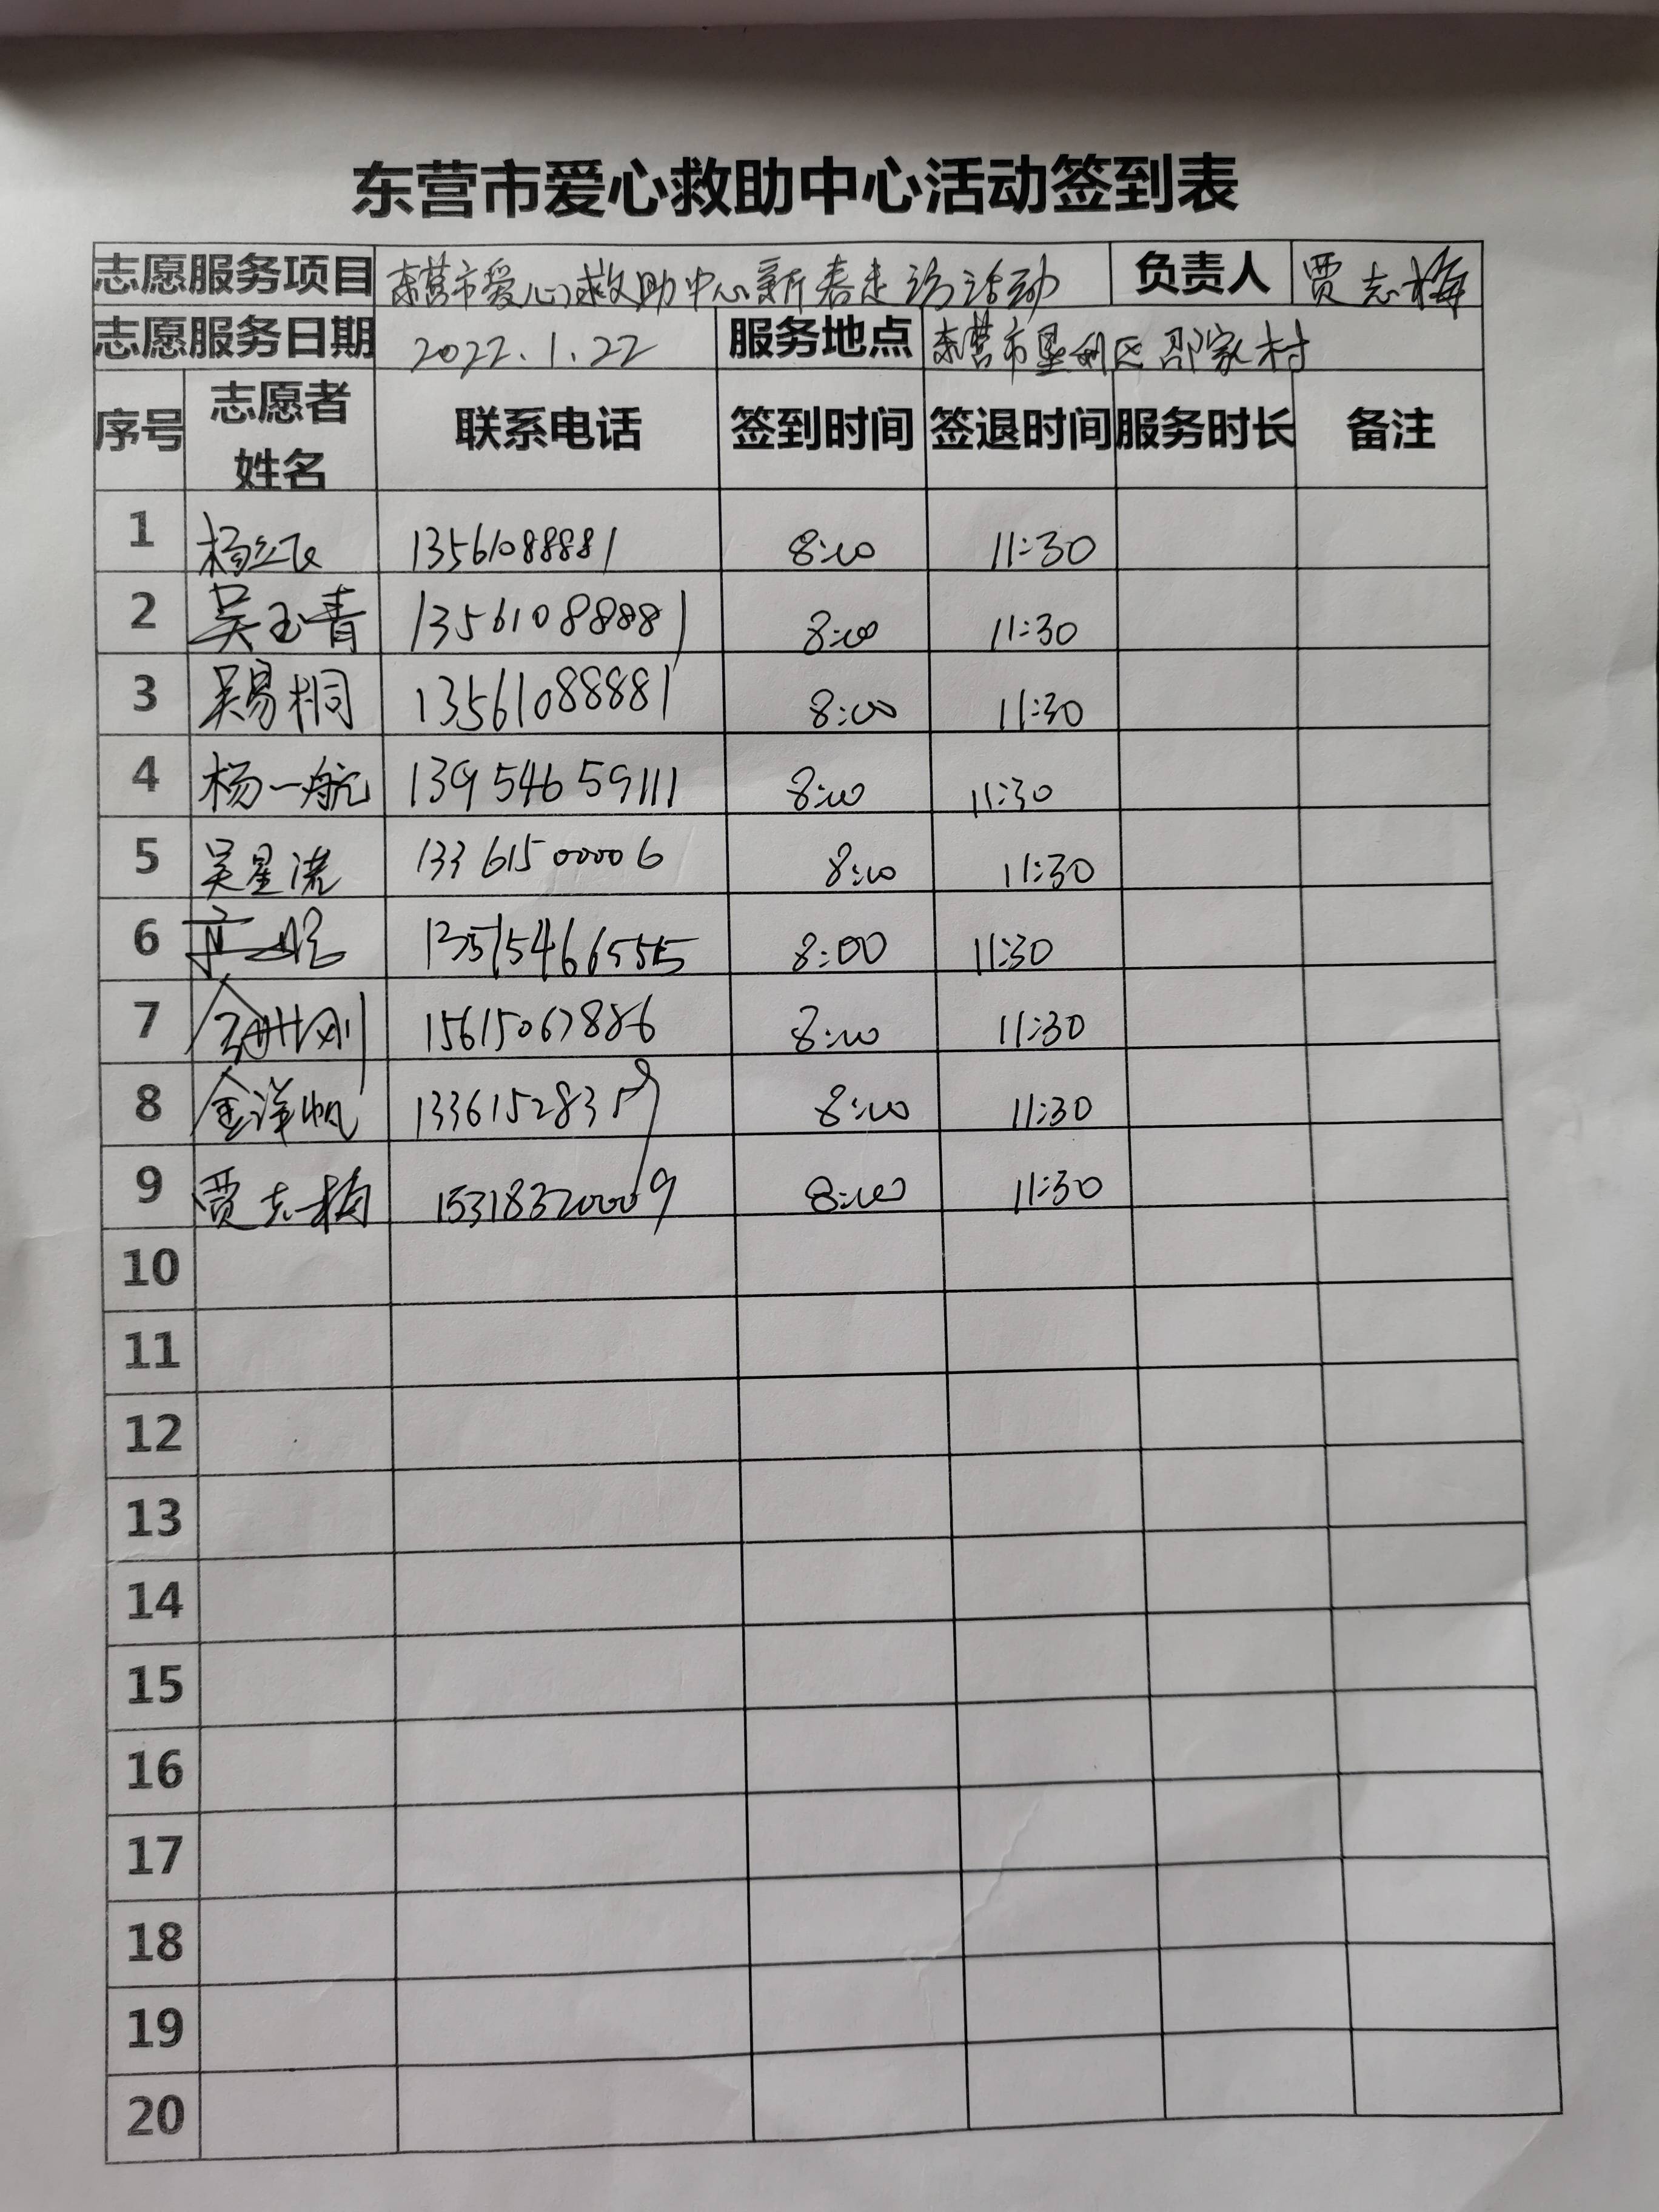 东营市爱心救助中心活动签到表
志愿服务项目 东营市爱心救助中心新春走访活动 负责人 贾志梅
志愿服务日期 2022.1.22 服务地点 东营市垦利区邵家村
序号 志愿者姓名 联系电话 签到时间 签退时间 服务时长 备注
1 杨红飞 13561088881 8:00 11:30
2 吴玉青 13561088881 8:00 11:30
3 吴易桐 13561088881 8:00 11:30
4 杨一航 13954659111 8:00 11:30
5 吴星滢 13361500006 8:00 11:30
6 8:00 11:30
7 15615067886 8:00 11:30
8 金洋帆 13361528359 8:00 11:30
9 贾志梅 15318320009 8:00 11:30
10
11
12
13
14
15
16
17
18
19
20